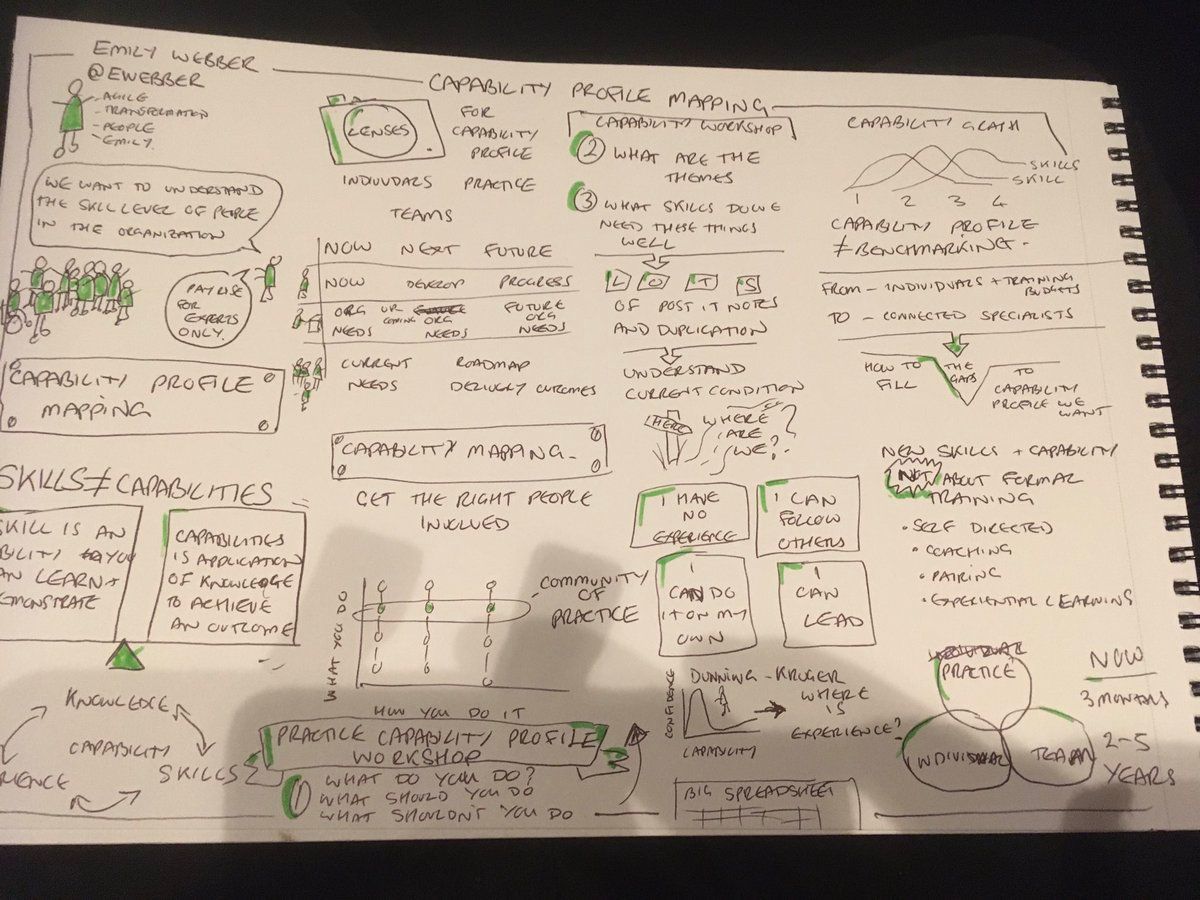 EMILY WEBBER
@EWEBBER
- AGILE
- TRANSFORMATION
- PEOPLE
- EMILY.
WE WANT TO UNDERSTAND
THE SKILL LEVEL OF PEOPLE
IN THE ORGANIZATION
PAY RISE
FOR
EXPERTS
ONLY.
CAPABILITY PROFILE
MAPPING
SKILLS ≠ CAPABILITIES
SKILL IS AN
YOU
AN LEARN +
CAPABILITIES
IS APPLICATION
OF KNOWLEDGE
TO ACHIEVE
AN OUTCOME
KNOWLEDGE
CAPABILITY
SKILLS
RIENCE
CAPABILITY PROFILE MAPPING
LENSES
FOR
CAPABILITY
PROFILE
INDIVUDALS PRACTICE
TEAMS
NOW NEXT FUTURE
NOW DEVELOP PROGRESS
ORG UP FUTURE
NEEDS COMING ORG ORG
NEEDS NEEDS
CURRENT ROADMAP
NEEDS DELIVERY OUTCOMES
CAPABILITY MAPPING-
GET THE RIGHT PEOPLE
INVOLVED
WHAT YOU DO
COMMUNITY
OF
PRACTICE
HOW YOU DO IT
PRACTICE CAPABILITY PROFILE
WORKSHOP
1 WHAT DO YOU DO?
WHAT SHOULD YOU DO
WHAT SHOULDN'T YOU DO
CAPABILITY WORKSHOP
2 WHAT ARE THE
THEMES
3 WHAT SKILLS DO WE
NEED THESE THINGS
WELL
L O T S
OF POST IT NOTES
AND DUPLICATION
UNDERSTAND
CURRENT CONDITION
HERE
WHERE
ARE
WE?
I HAVE
NO
EXPERIENCE
I CAN
FOLLOW
OTHERS
I
CAN DO
IT ON MY
OWN
I
CAN
LEAD
DUNNING - KRUGER
CONFIDENCE
CAPABILITY
WHERE
IS
EXPERIENCE?
BIG SPREADSHEET
CAPABILITY GRAPH
SKILLS
SKILL
1 2 3 4
CAPABILITY PROFILE
≠ BENCHMARKING-
FROM - INDIVIDUALS + TRAINING
BUDGETS
TO - CONNECTED SPECIALISTS
HOW TO
FILL
THE
GAPS
TO
CAPABILITY
PROFILE WE
WANT
NEW SKILLS + CAPABILITY
NOT ABOUT FORMAL
TRAINING
• SELF DIRECTED
• COACHING
• PAIRING
• EXPERIENTIAL LEARNING
PRACTICE
INDIVIDUAL
TEAM
NOW
3 MONTHS
2-5
YEARS